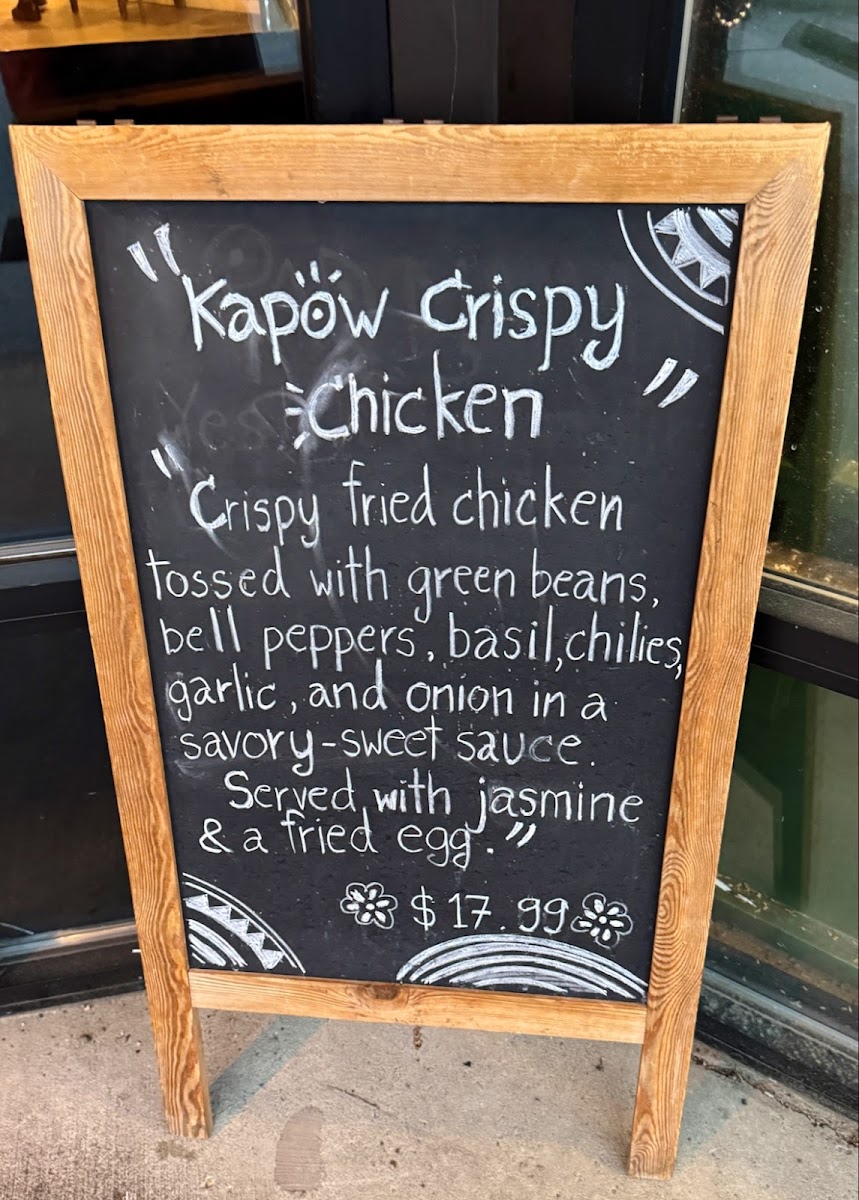 "Kapow Crispy
Chicken"
"Crispy fried chicken
tossed with green beans,
bell peppers, basil, chilies,
garlic, and onion in a
savory-sweet sauce.
Served with jasmine
& a fried egg."
$17.99